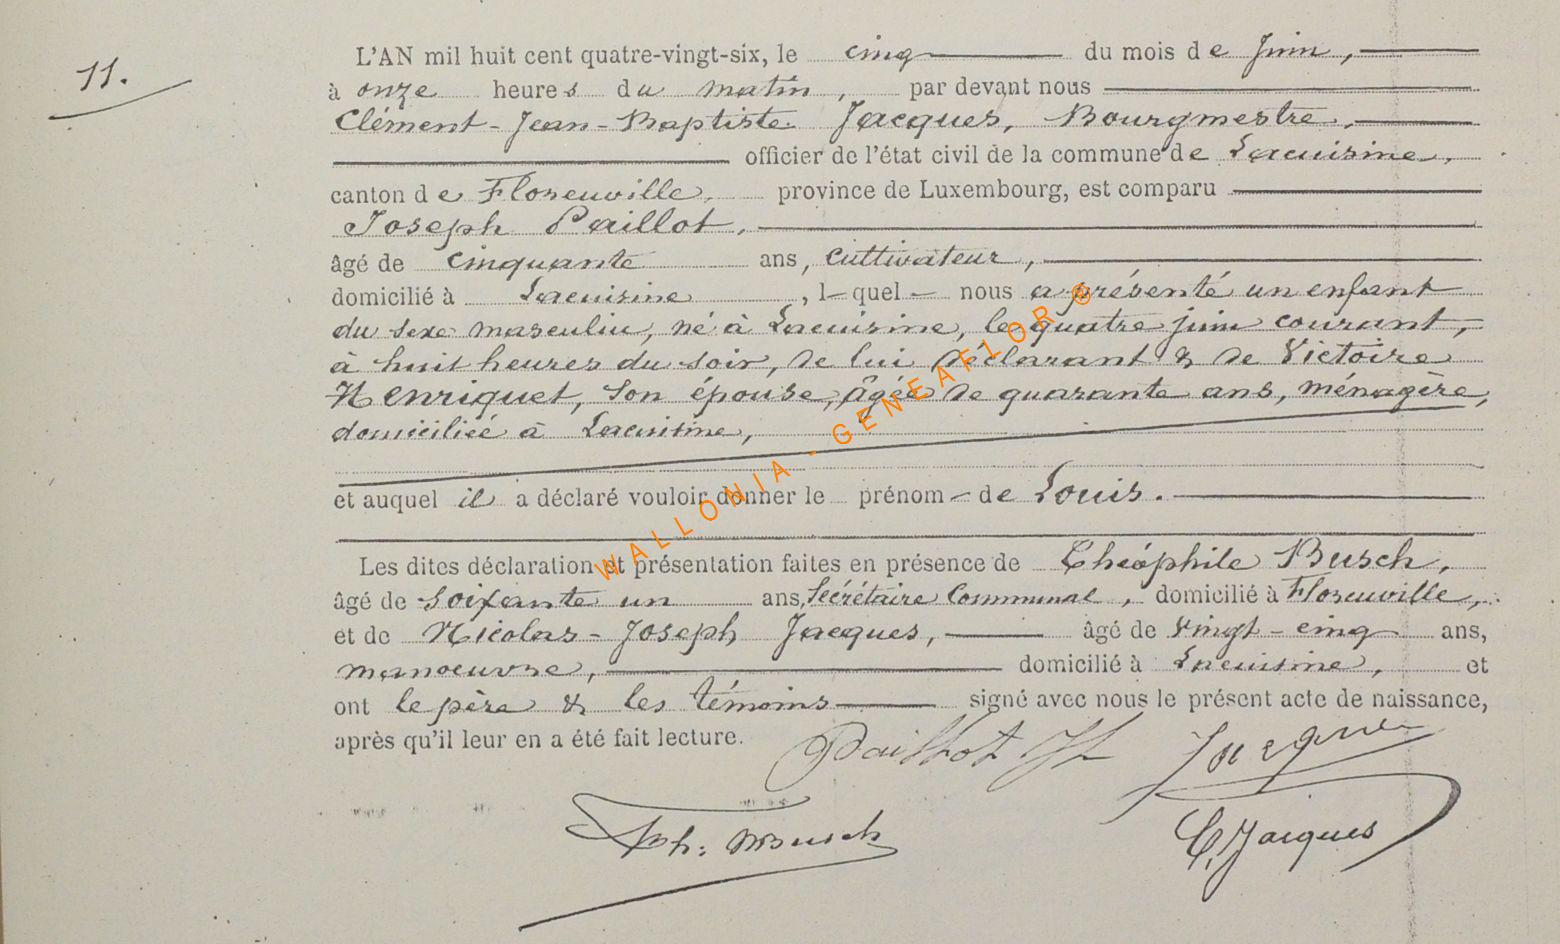 11.
L'AN mil huit cent quatre-vingt-six, le cinq du mois de Juin,
à onze heures du matin, par devant nous
Clément-Jean-Baptiste Jacques, Bourgmestre,
officier de l'état civil de la commune de Lacuisine,
canton de Florenville, province de Luxembourg, est comparu
Joseph Paillot,
âgé de cinquante ans, cultivateur,
domicilié à Lacuisine, l-quel- nous a présenté un enfant
du sexe masculin, né à Lacuisine, le quatre juin courant,
à huit heures du soir, de lui déclarant & de Victoire
Henriquet, son épouse, âgée de quarante ans, ménagère,
domiciliée à Lacuisine,
et auquel il a déclaré vouloir donner le prénom - de Louis.
Les dites déclaration et présentation faites en présence de Théophile Busch,
âgé de soixante un ans, Sécrétaire Communal, domicilié à Florenville,
et de Nicolas-Joseph Jacques, âgé de vingt-cinq ans,
manoeuvre, domicilié à Lacuisine, et
ont le père & les témoins signé avec nous le présent acte de naissance,
après qu'il leur en a été fait lecture.
Paillot Jh Jacques
Th: Busch
C. Jacques
WALLONIA - GENEAFLOR ©